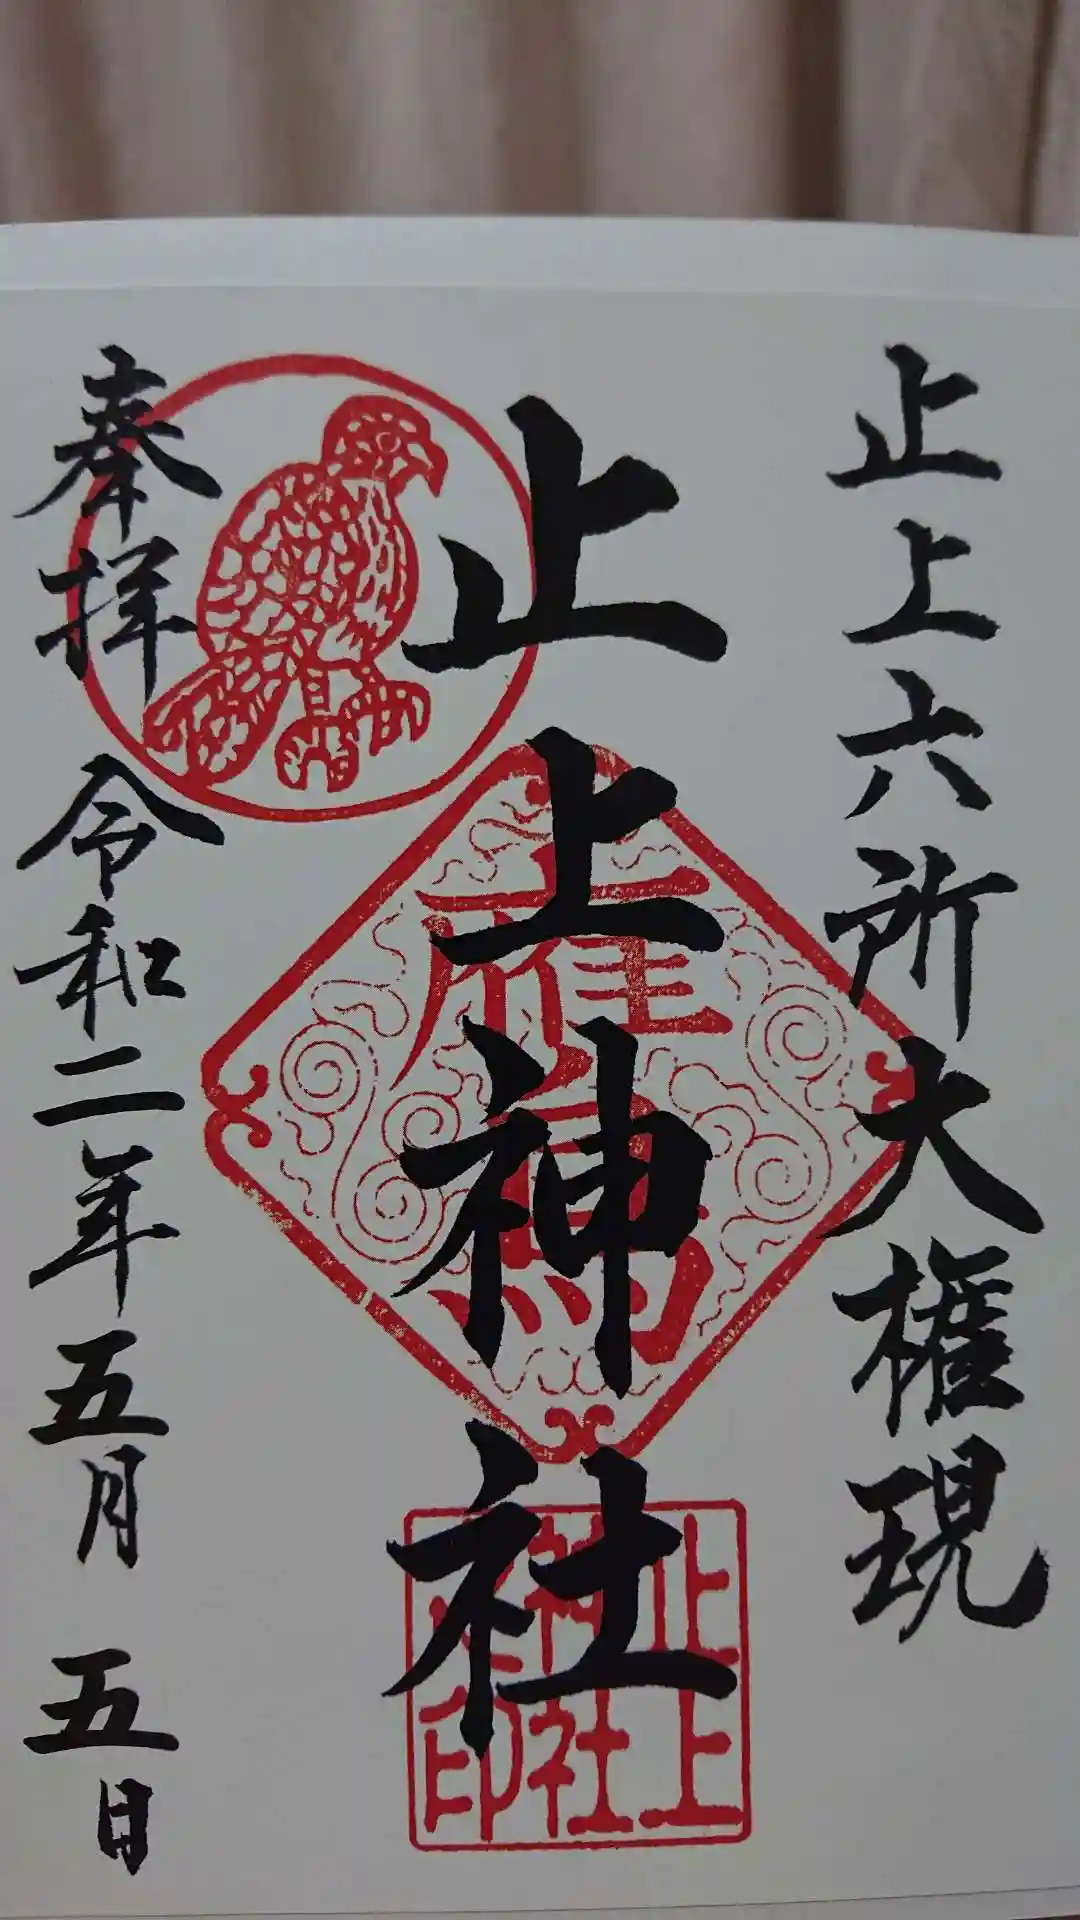 止上六所大権現
止上神社
奉拝 令和二年五月 五日
鷹
止上
神社
之印